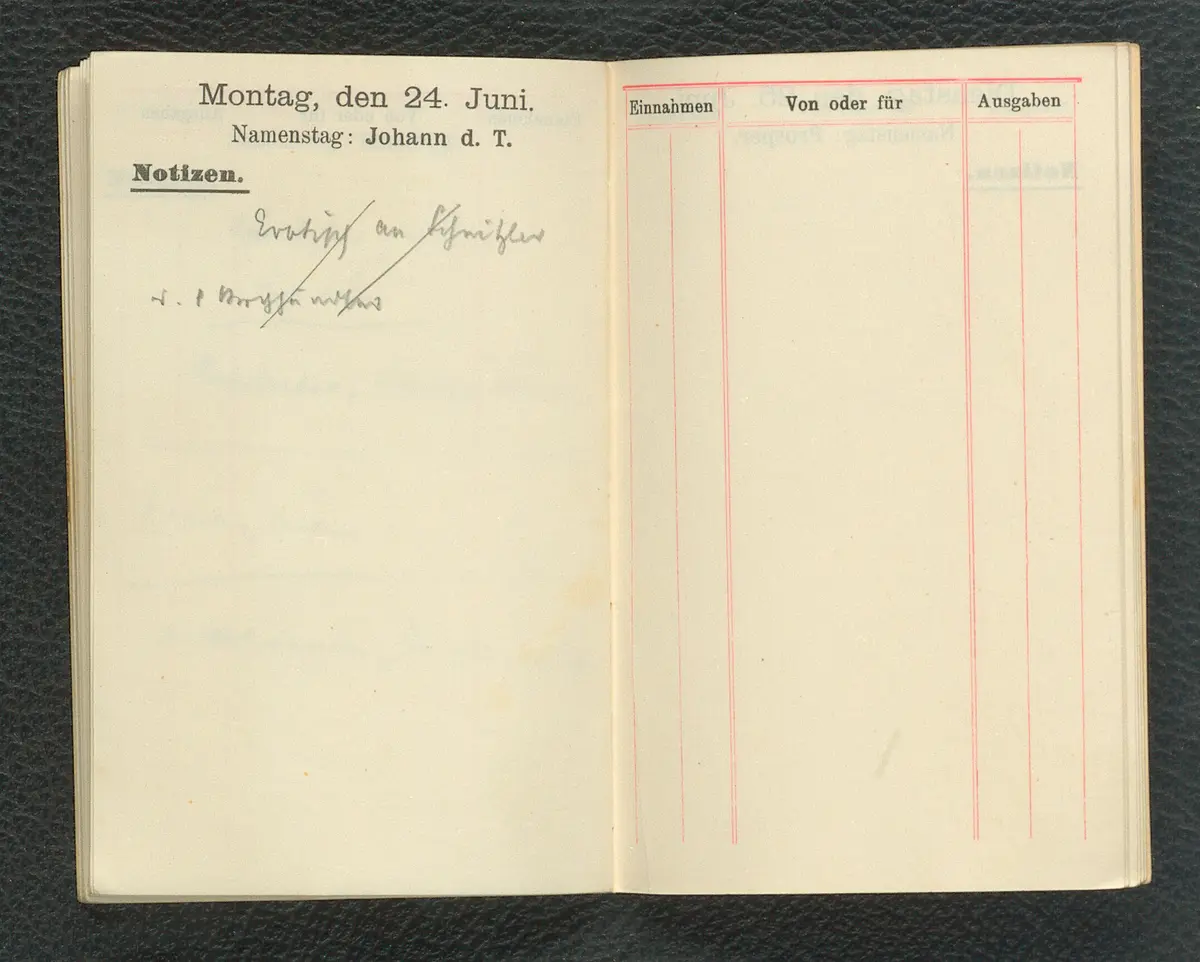 Montag, den 24. Juni.
Namenstag: Johann d. T.
Notizen.
Erotisch an Schnitzler
Einnahmen
Von oder für
Ausgaben